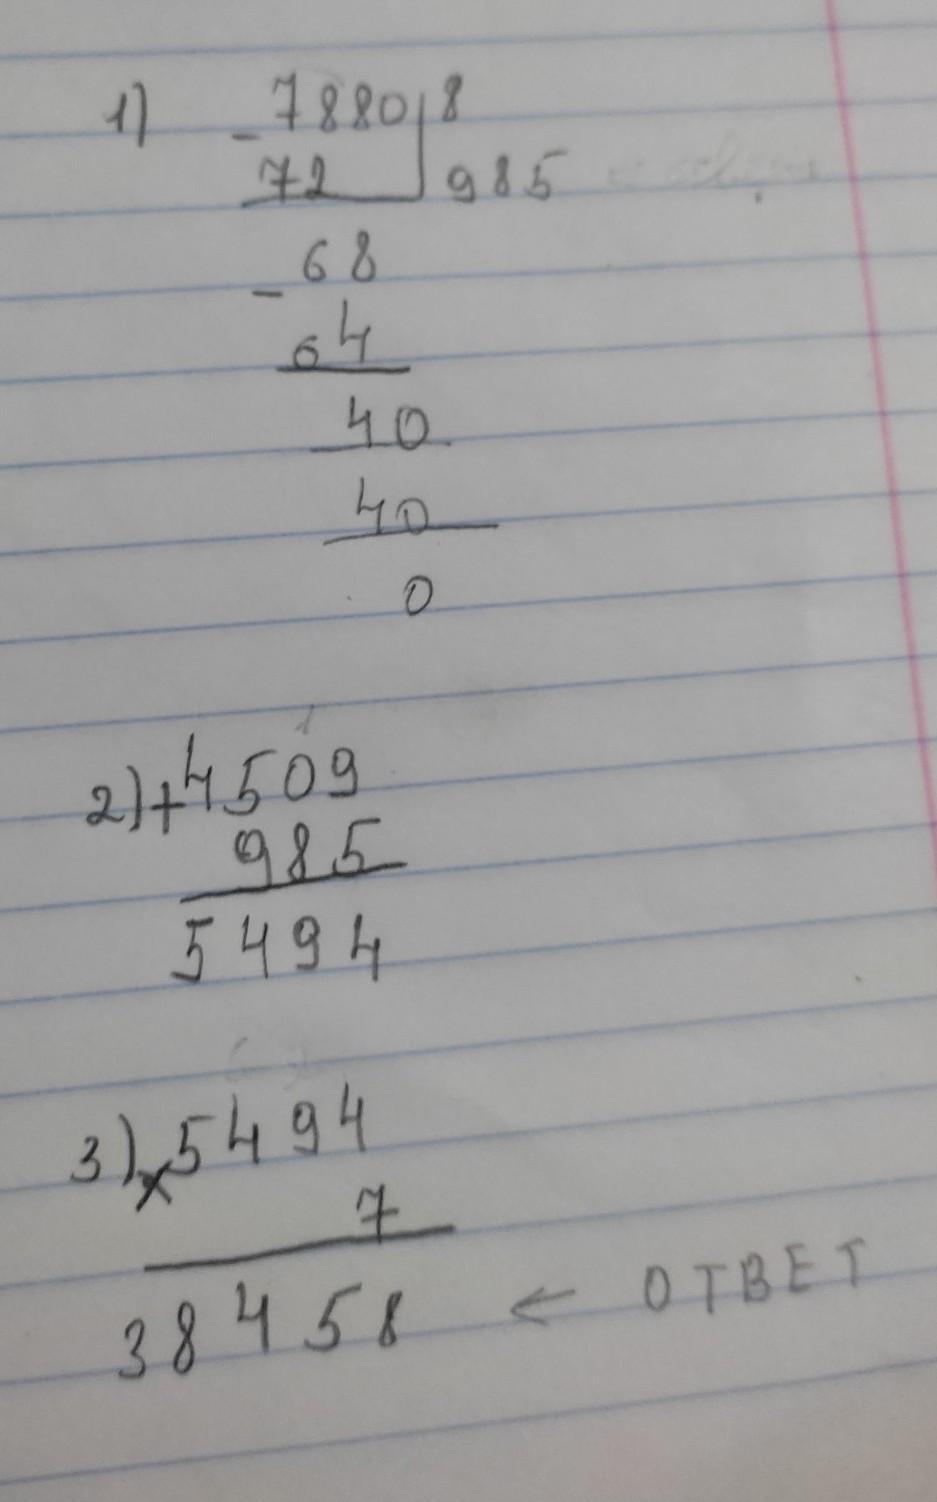 1) - 7880 | 8
72 985
- 68
64
40
40
0
2) + 4509
985
5494
3) x 5494
7
38458 ← ОТВЕТ